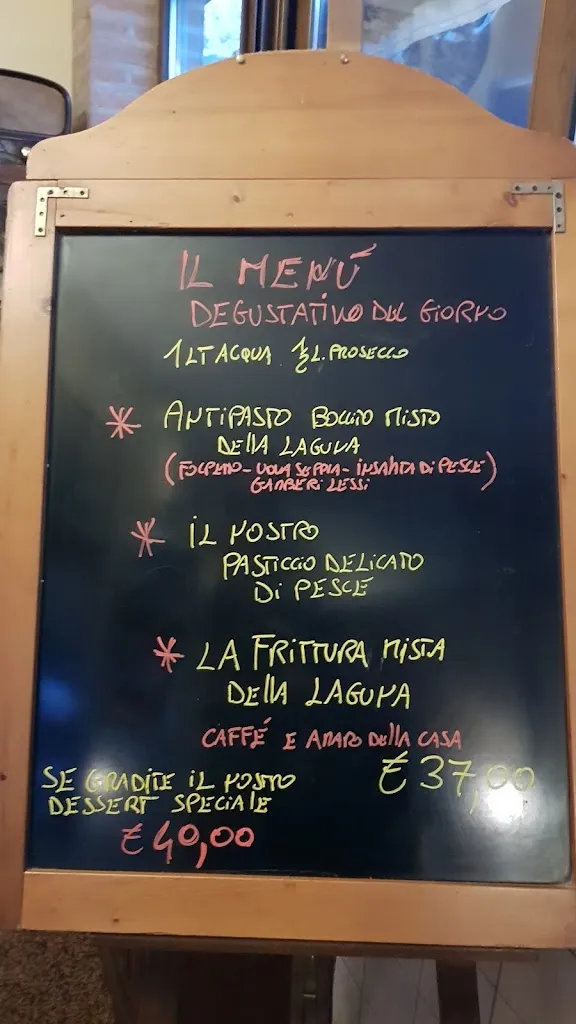 IL MENÚ
DEGUSTATIVO DEL GIORNO
1 LT ACQUA ½ L. PROSECCO
* ANTIPASTO BOLLITO MISTO
DELLA LAGUNA
(FOLPETTO - UOVA SEPPIA - INSALATA DI PESCE
GAMBERI LESSI)
* IL NOSTRO
PASTICCIO DELICATO
DI PESCE
* LA FRITTURA MISTA
DELLA LAGUNA
CAFFÉ E AMARO DELLA CASA
€ 37,00
SE GRADITE IL NOSTRO
DESSERT SPECIALE
€ 40,00